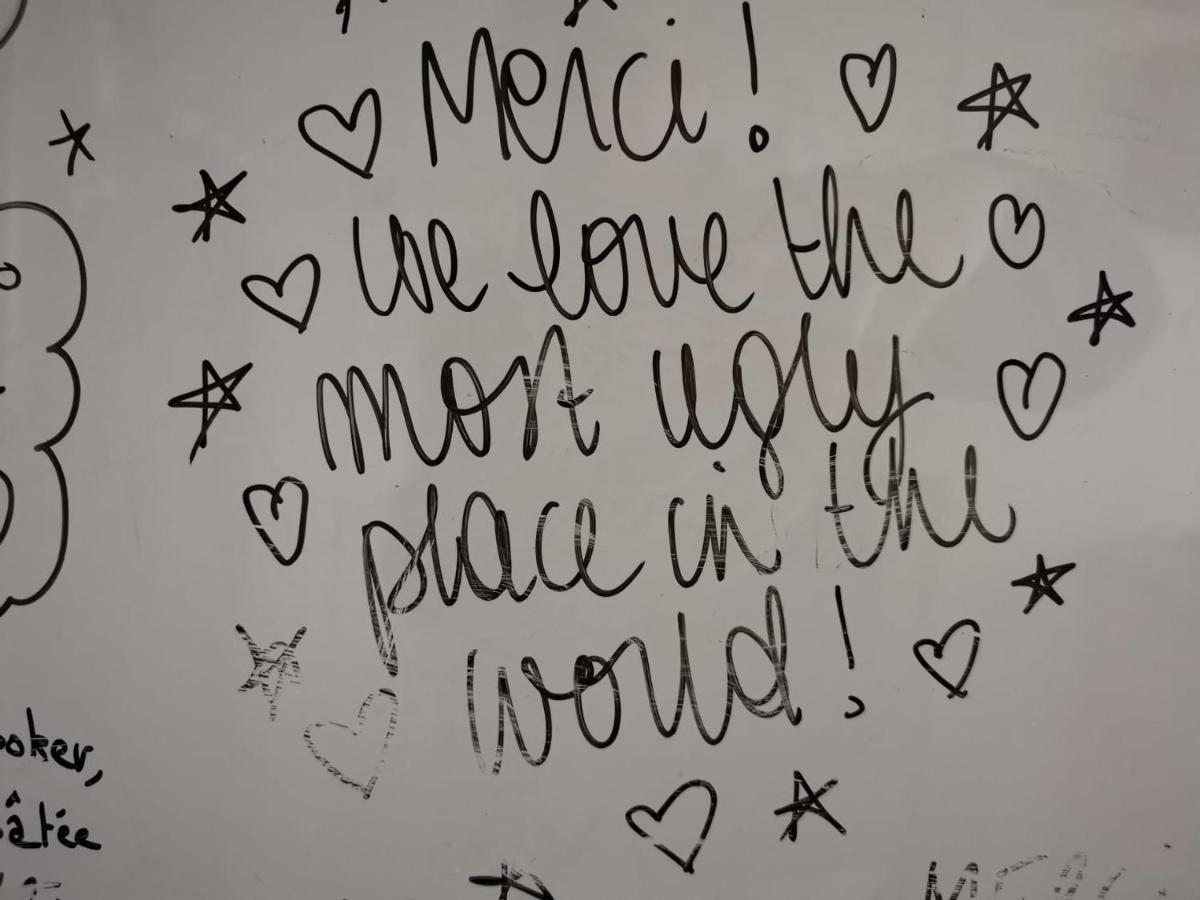 Merci!
We love the
most ugly
place in the
world!
Merci